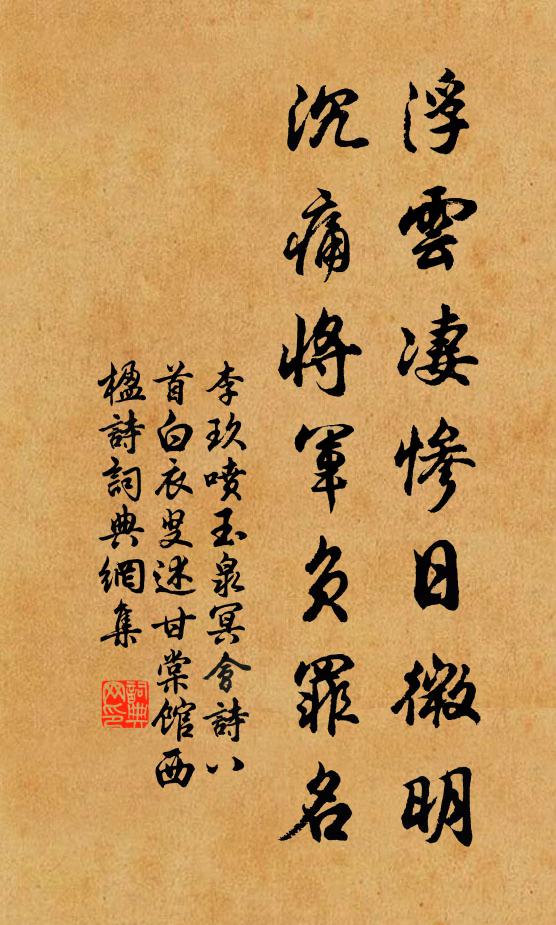 浮雲凄慘日微明
沉痛將軍負罪名
李玖噴玉泉冥會詩八
首白衣叟述甘棠館西
楹詩詞典網集
詞典
网印